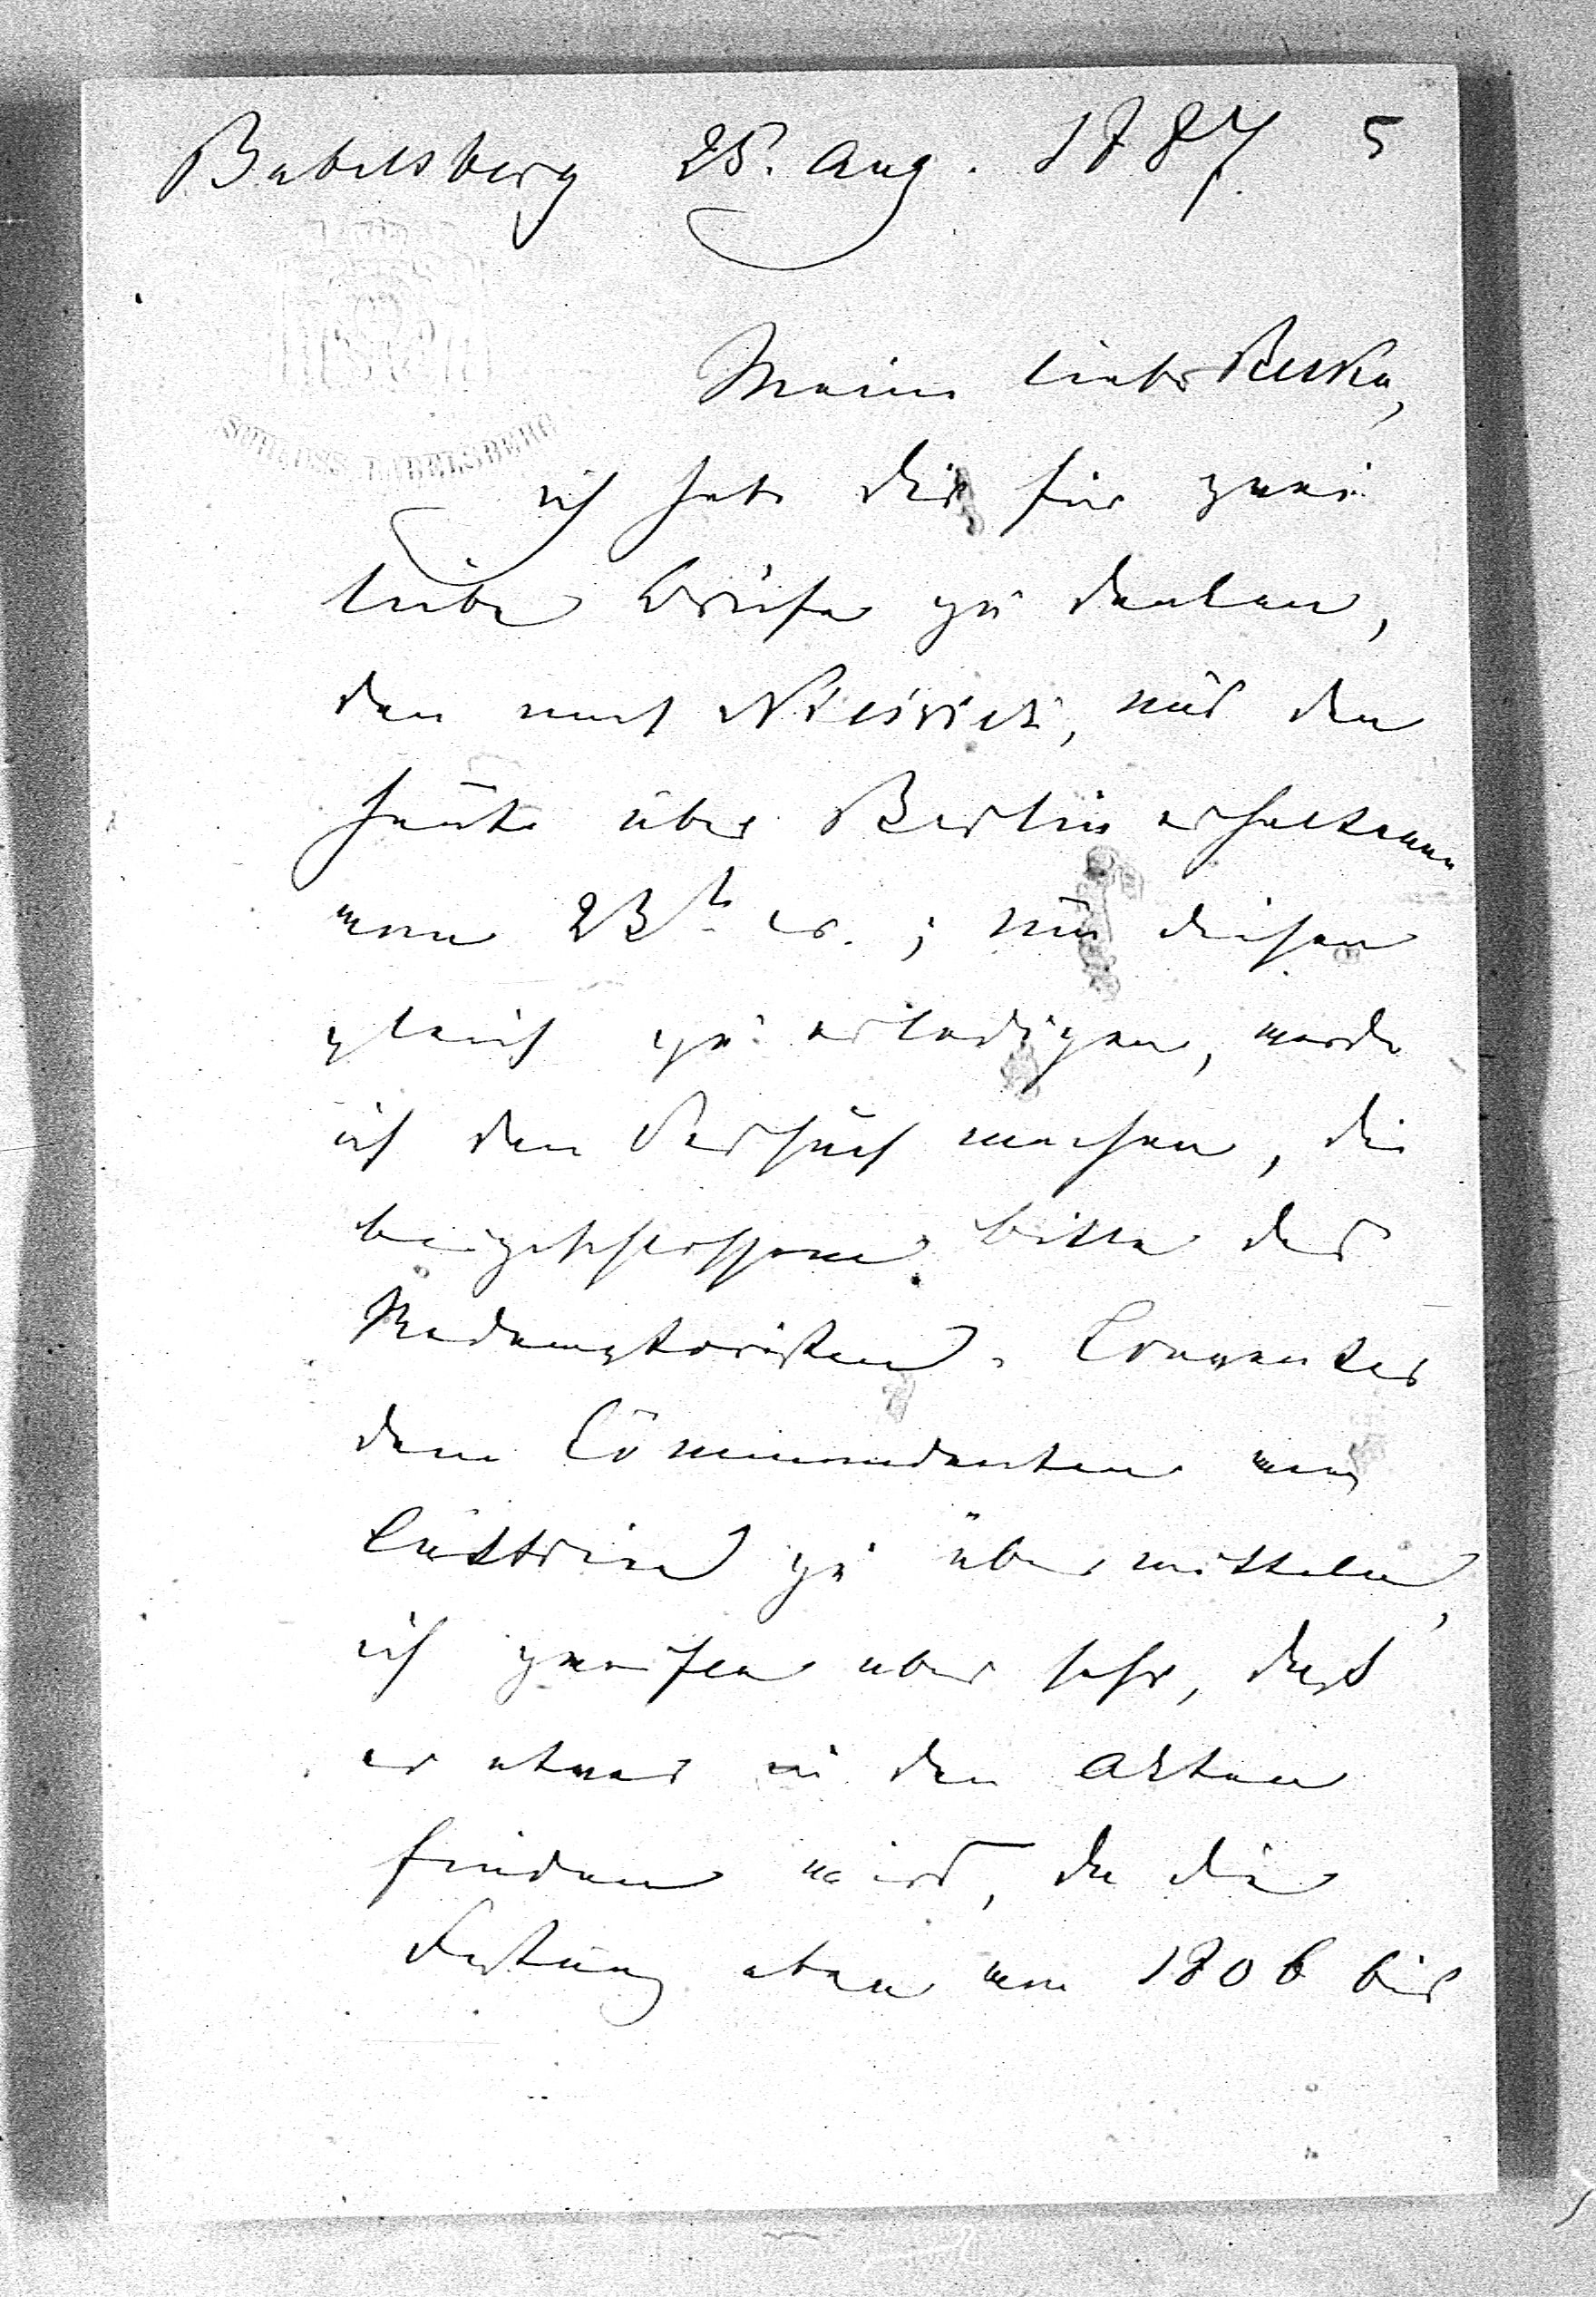 Babelsberg 25. Aug. 1887 5
SCHLOSS BABELSBERG
Meine liebe
ich habe Dir für zwei
liebe Briefe zu danken,
den nach Nieswiez, und den
heute über Berlin erhaltenen
vom 23t. cr.; um diesen
gleich zu erledigen, werde
ich den Versuch machen, die
beigeschlossene Bitte des
Redemptoristen-Conventes
dem Commandanten von
Cüstrin zu übermitteln,
ich zweifle aber sehr, daß
er etwas in den Akten
finden wird, da die
Festung eben von 1806 bis